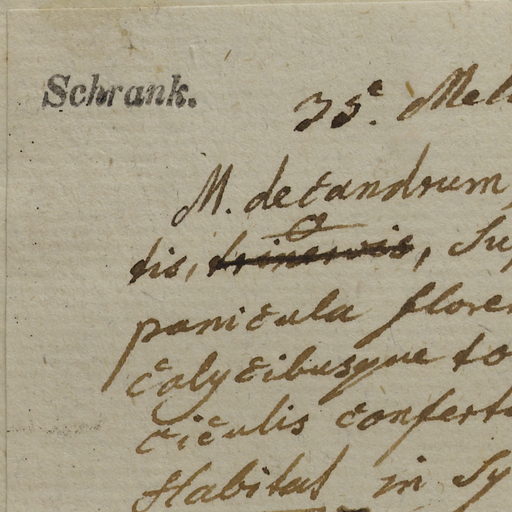 Schrank.
35.
M. decandrum,
tis, trinervis, Su
panicula flore
Calycibusque to
ciculis confert
Habitat in Sy